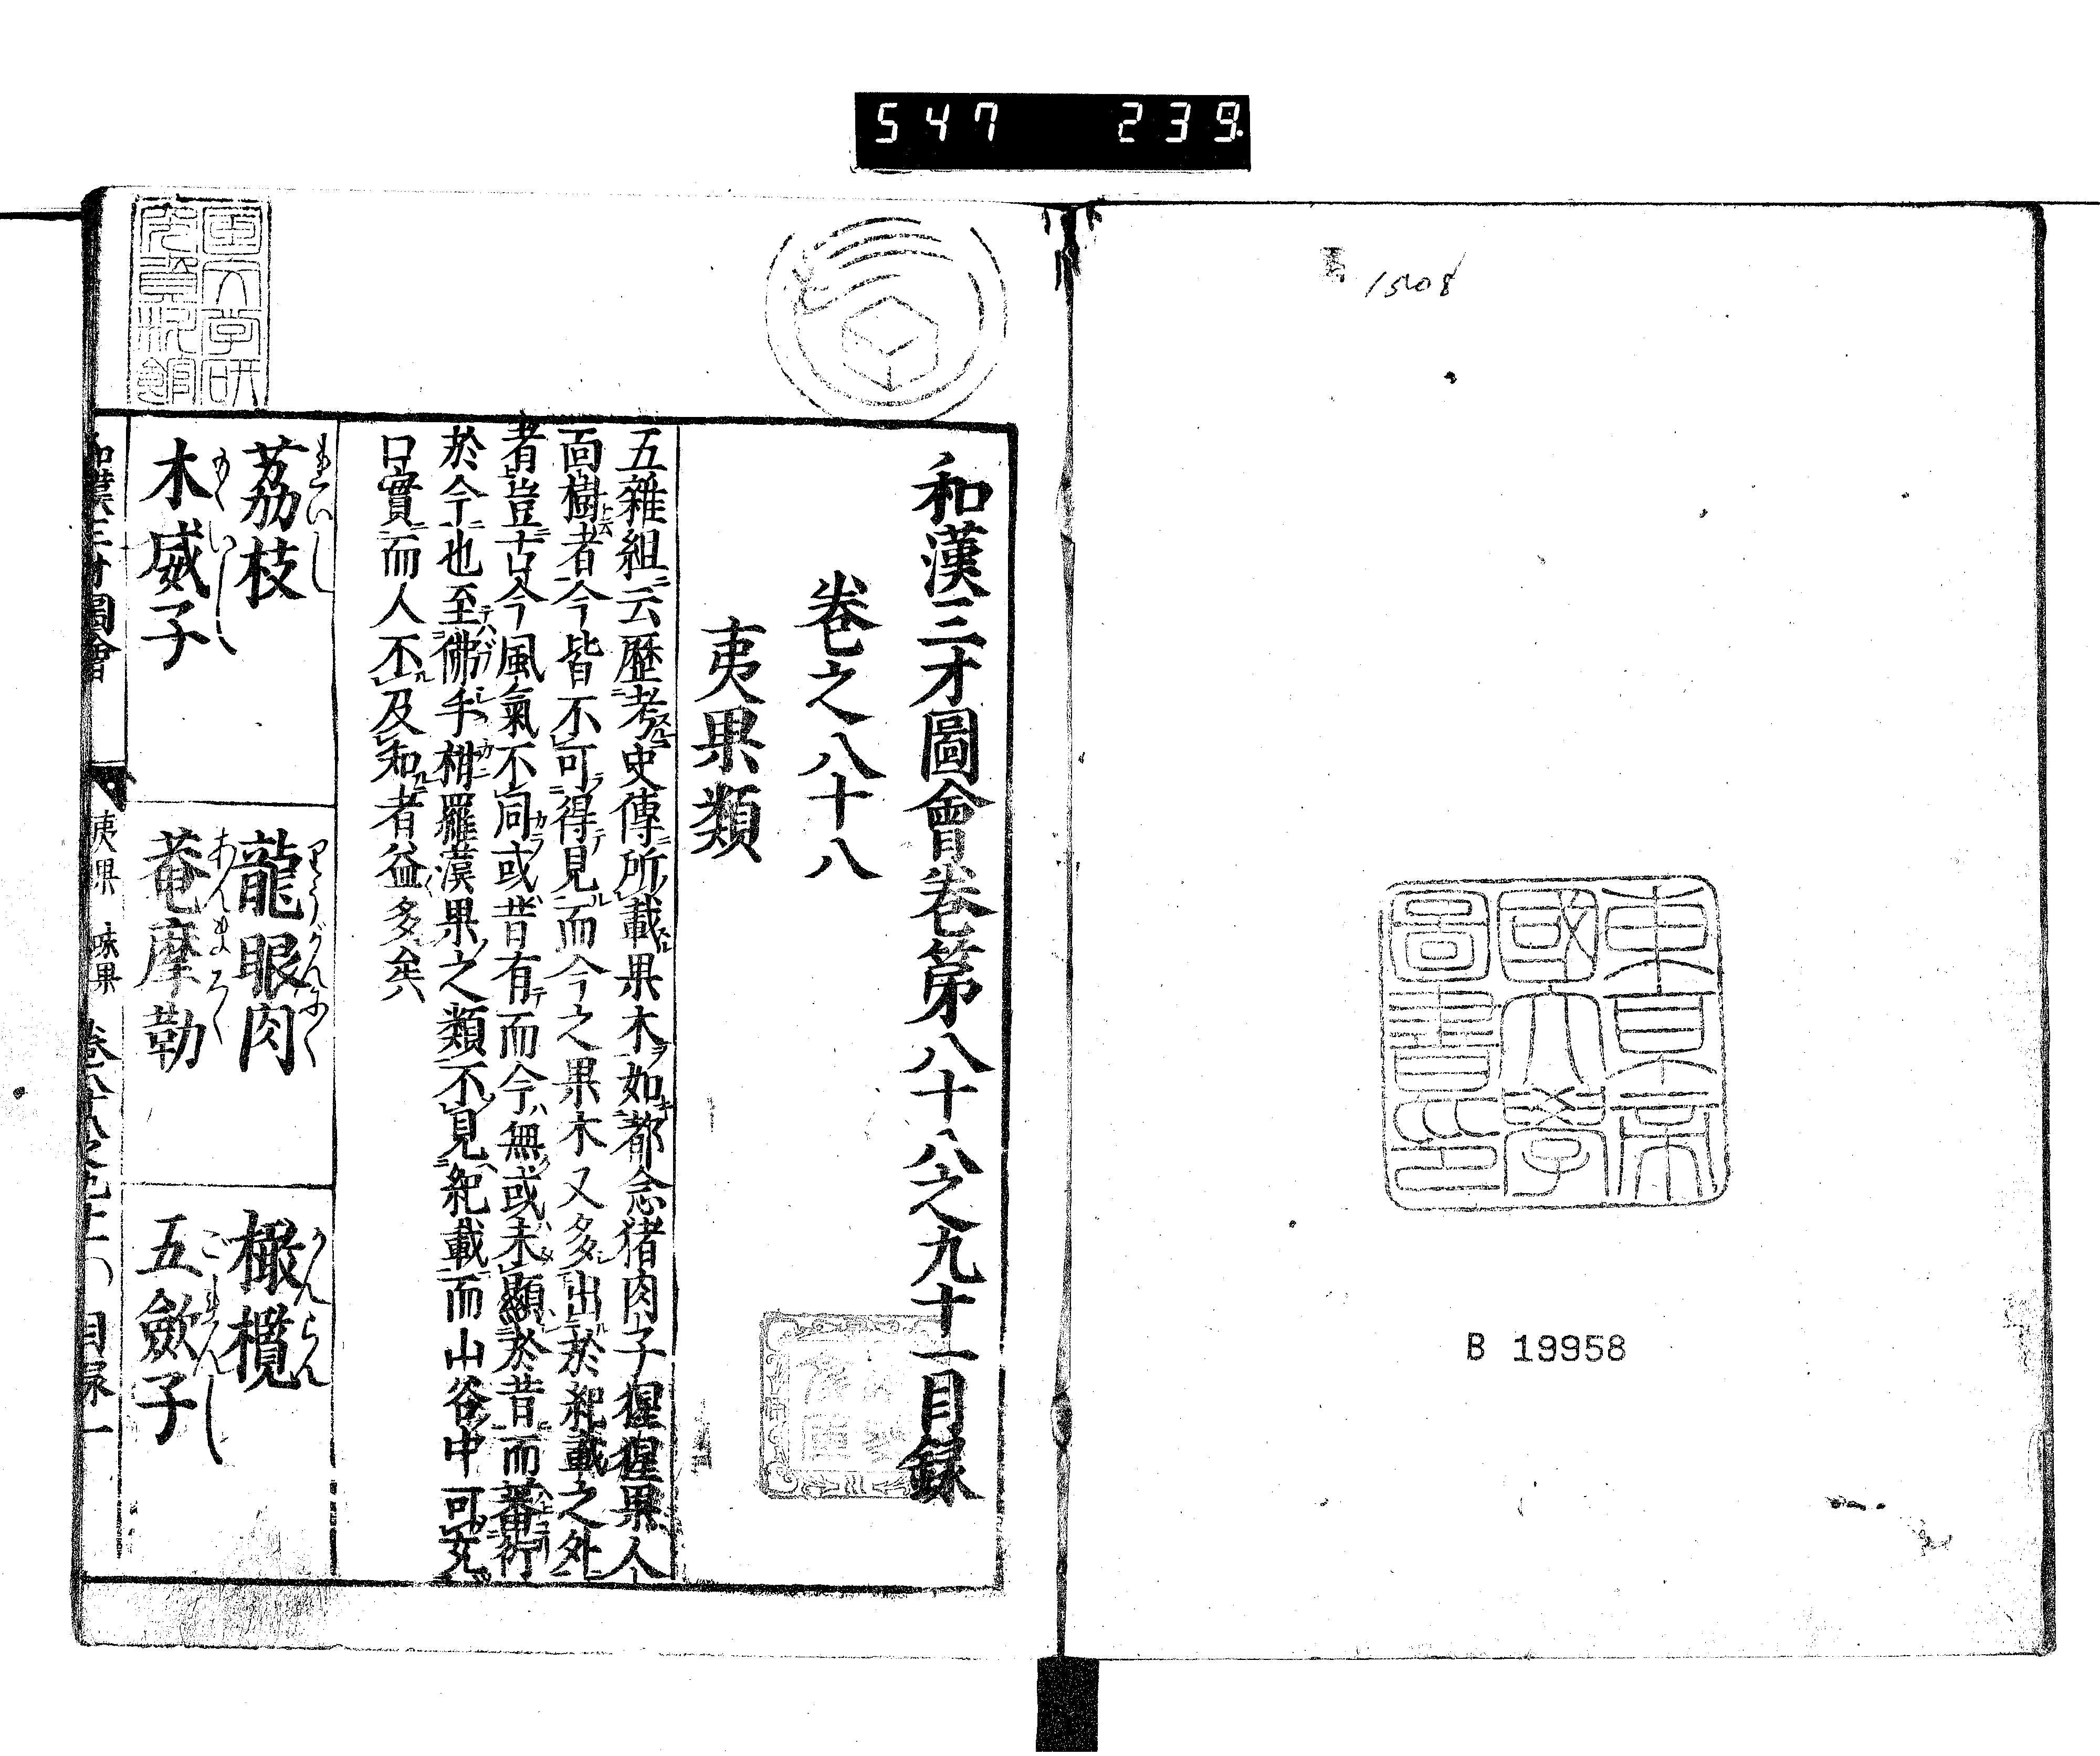 547 239
1508
東京帝
國大學
圖書印
B 19958
國文学研
究資料館
和漢三才圖會卷第八十八之九十一目録
卷之八十八
夷果類
五雜組云歷考史傳所載果木如都念猪肉子猩猩果人
面樹者今皆不可得見而今之果木又多出於紀載之外
者豈古今風氣不同或昔有而今無或未顯於昔而蕃衍
於今也至佛手柑羅漢果之類不見紀載而山谷中可充
口實而人不及知者益多矣
荔枝 れいし
龍眼肉 りうがんにく
橄欖 かんらん
木威子 もくいし
菴摩勒 あんまろく
五斂子 ごれんし
和漢三才圖會 夷果 味果 卷八十八之九十一 目録一